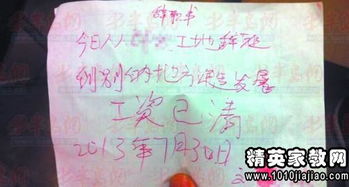 辞职书
今日人 工地辞班
倒别的地方谋发展
工资已清
2013年7月30日
精英家教网
www.1010jiajiao.com